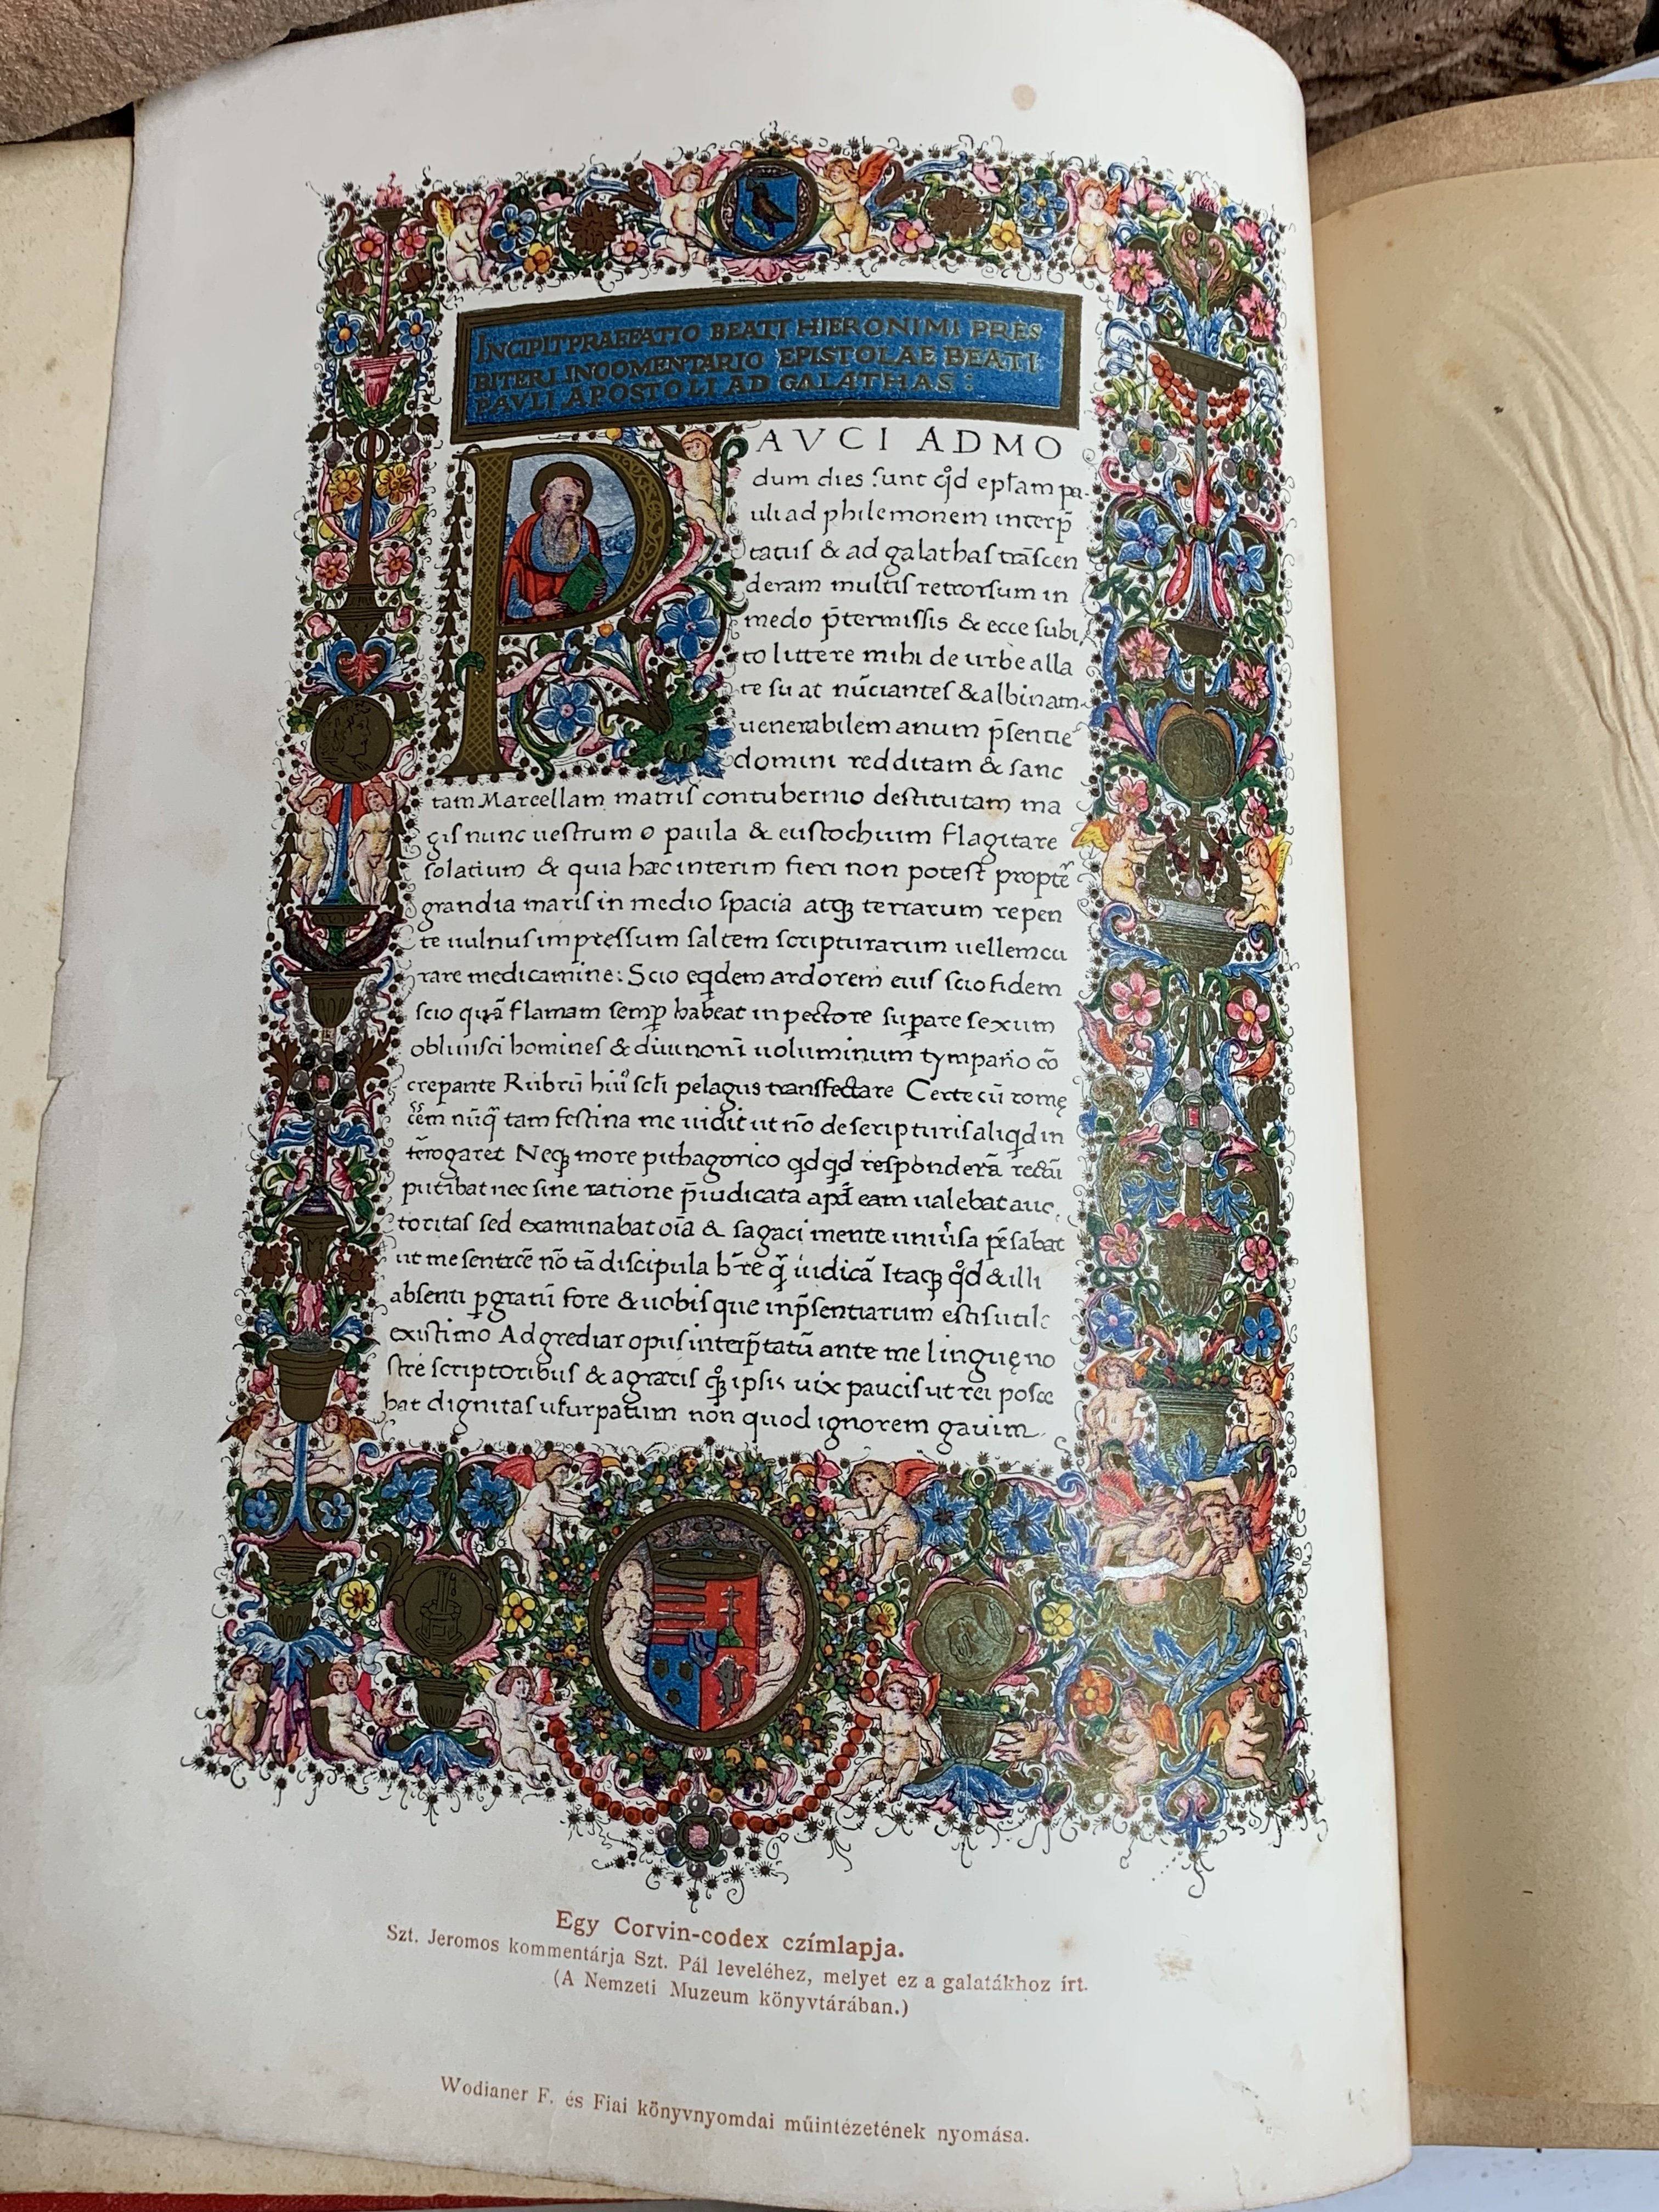 INCIPIT PRAEFATIO BEATI HIERONIMI PRES
BITERI IN COMENTARIO EPISTOLAE BEATI
PAVLI APOSTOLI AD GALATHAS:
PAVCI ADMO
dum dies sunt qd eptam pa-
uli ad philemonem interp̄
tatus & ad galathas trãscen
deram multis retrorsum in
medo p̄termissis & ecce subi
to littere mihi de urbe alla
te su at nũciantes & albinam
uenerabilem anum p̄sentie
domini redditam & sanc
tam Marcellam matris contubernio destitutam ma
gis nunc uestrum o paula & eustochium flagitare
solatium & quia hæc interim fieri non potest propte
grandia maris in medio spacia atq; terrarum repen
te uulnus impressum saltem scripturarum uellem cu
rare medicamine: Scio eqdem ardorem eius scio fidem
scio quã flamam semp habeat in pectore supare sexum
obliuisci homines & diuinoꝝ uoluminum tympano cõ
crepante Rubrũ hui scti pelagus transfectare Certe cũ romę
cẽm nũq̃ tam festina me uidit ut nõ de scripturis aliqd in
terogaret Neq; more pithagorico qdqd responderã rectũ
putibat nec sine ratione p̄iudicata apd eam ualebat auc
toritas sed examinabat oĩa & sagaci mente uniũsa pẽsabat
ut me sentrẽ nõ tã discipula h̄re q̃ iudicã Itaq; qd & illi
absenti p gratũ fore & uobis que in p̄sentiarum estis utile
existimo Adgrediar opus interp̄tatũ ante me linguę no
stre scriptoribus & a grecis q; ipsis uix paucis ut rei posce
bat dignitas usurpatum non quod ignorem gauim
Egy Corvin-codex czímlapja.
Szt. Jeromos kommentárja Szt. Pál leveléhez, melyet ez a galatákhoz írt.
(A Nemzeti Muzeum könyvtárában.)
Wodianer F. és Fiai könyvnyomdai műintézetének nyomása.